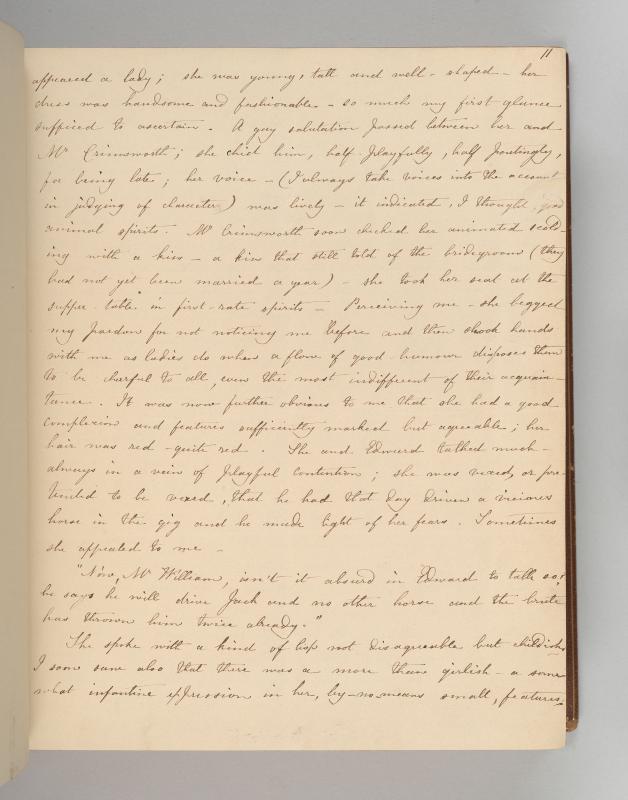 11
appeared a lady; she was young, tall and well-shaped - her
dress was handsome and fashionable - so much my first glance
sufficed to ascertain. A gay salutation passed between her and
Mr Crimsworth; she chid him, half playfully, half poutingly,
for being late; her voice - (I always take voices into the account
in judging of character) was lively - it indicated, I thought, good
animal spirits. Mr Crimsworth soon checked her animated scold-
ing with a kiss - a kiss that still told of the bridegroom (they
had not yet been married a year) - she took her seat at the
supper-table in first-rate spirits - Perceiving me - she begged
my pardon for not noticing me before and then shook hands
with me as ladies do when a flow of good-humour disposes them
to be cheerful to all, even the most indifferent of their acquain-
tance. It was now further obvious to me that she had a good
complexion and features sufficiently marked but agreeable; her
hair was red - quite red. She and Edward talked much -
always in a vein of playful contention; she was vexed, or pre-
tended to be vexed, that he had that day driven a vicious
horse in the gig and he made light of her fears. Sometimes
she appealed to me -
"Now, Mr William, isn't it absurd in Edward to talk so?
he says he will drive Jack and no other horse and the brute
has thrown him twice already."
She spoke with a kind of lisp not disagreeable but childish
I soon saw also that there was a more than girlish - a some-
what infantine expression in her, by-no-means small, features;